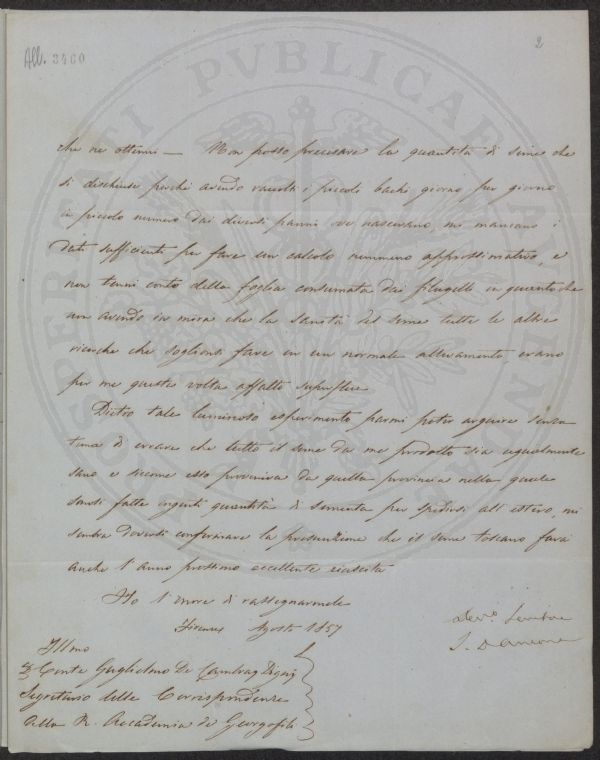 All. 3460
2
PROSPERITATI PVBLICAE AVGENDAE
che ne ottenni — Non posso precisare la quantità di seme che
si dischiuse perchè avendo raccolti i piccoli bachi giorno per giorno
in piccolo numero dai diversi panni ove nascevano, mi mancano i
dati sufficienti per fare un calcolo nemmeno approssimativo, e
non tenni conto della foglia consumata dai filugelli in quantoche
non avendo in mira che la sanità del seme tutte le altre
ricerche che soglionsi fare in un normale allevamento erano
per me questa volta affatto superflue
Dietro tale luminoso esperimento parmi poter arguire senza
tema di errare che tutto il seme da me prodotto sia ugualmente
sano e siccome esso proveniva da quella provincia nella quale
sonosi fatte ingenti quantità di sementa per spedirsi all'estero, mi
sembra doversi confermare la presunzione che il seme toscano farà
anche l'anno prossimo eccellente riuscita
Ho l'onore di rassegnarmele
Firenze Agosto 1857
Dev.º Servitore
J. D'Ancona
Illmo
Sig Conte Guglielmo De Cambray Digny
Segretario delle Corrispondenze
alla R. Accademia de Georgofili